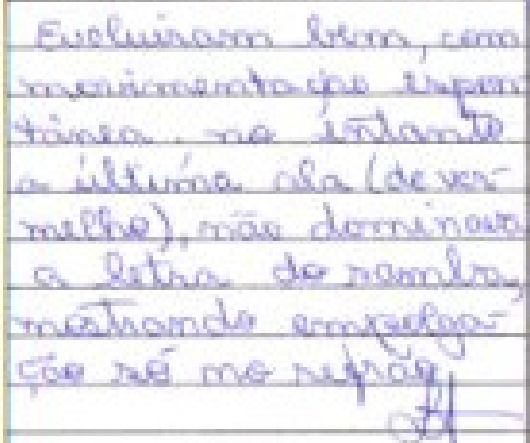 Evoluiram bem, com
movimentação espon
tânea. no entanto
a última ala (de ver-
melho), não dominava
a letra do samba,
mostrando empolga-
ção só no refrão